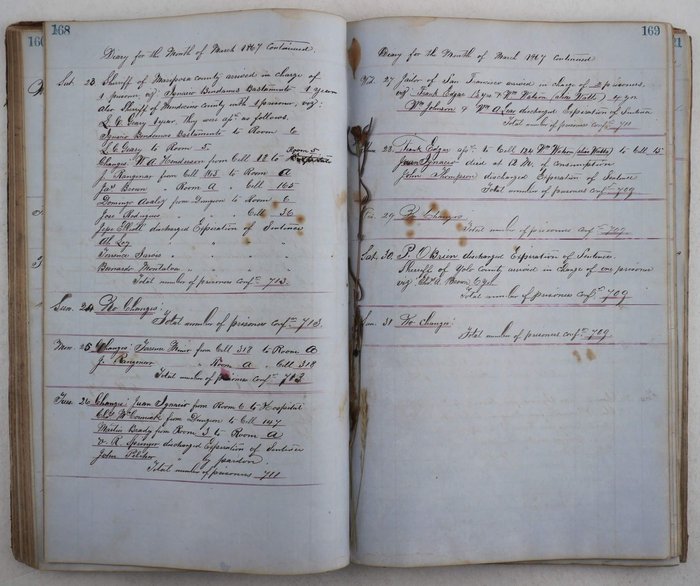 160
168
Diary for the Month of March 1867 Continued
Sat. 23 Sheriff of Mariposa county arrived in charge of
1 prisoner viz Ignacio Bendamus Bastamento 1 year
also Sheriff of Mendocino county with 1 prisoner, viz:
L. G. Geary 1 year, they was apt as follows.
Ignacio Bendamus Bastamento to Room 6
L G Geary to Room 5
Changes W. A. Henderson from Cell 12 to Room 5
J. from Cell 165 to Room A
Jas Brown " Room A " Cell 165
Domingo from Dungeon to Room 6
Jose Rodriguez " " " Cell 36
Jesse Elliott discharged Expiration of Sentence
Ah Loy " " "
Terence " " "
Bernardo " " "
Total number of prisoners Confd 713.
Sun. 24 No Changes:
Total number of prisoners confd 713.
Mon. 25 Changes: Terrence from Cell 318 to Room A
J. " Room A " Cell 318
Total number of prisoners Confd 713
Tues. 26 Changes: Juan Ignacio from Room 6 to Hospital
McCormick from Dungeon to Cell 147
Brady from Room 3 to Room A
discharged Expiration of Sentence
John " by pardon.
Total number of prisoners 711
169
171
Diary for the Month of March 1867 Continued
Wed. 27 Jailor of San Francisco arrived in charge of 2 prisoners,
viz Frank Edgar 1½ yrs & Wm Watson (alias Watts) 4 yrs
Wm Johnson & Wm A Lane discharged Expiration of Sentence
Total number of prisoners Confd 711
28 Frank Edgar apt to Cell 124 Wm Watson (alias Watts) to Cell 45
Juan Ignacio died at A.M. of Consumption
John Thompson discharged Expiration of Sentence
Total number of prisoners Confd 709
29 No Changes
Total number of prisoners confd 709
Sat. 30 P. O'Brien discharged Expiration of Sentence
Sheriff of Yolo County arrived in Charge of one prisoner
viz A. Brown
Total number of prisoners Confd 709
Sun. 31 No Changes:
Total number of prisoners confd 709